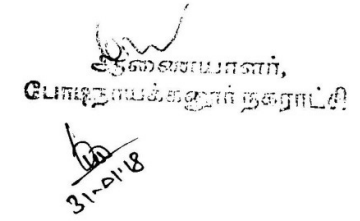 ஆணையாளர்,
போடிநாயக்கனூர் நகராட்சி
31-01-18